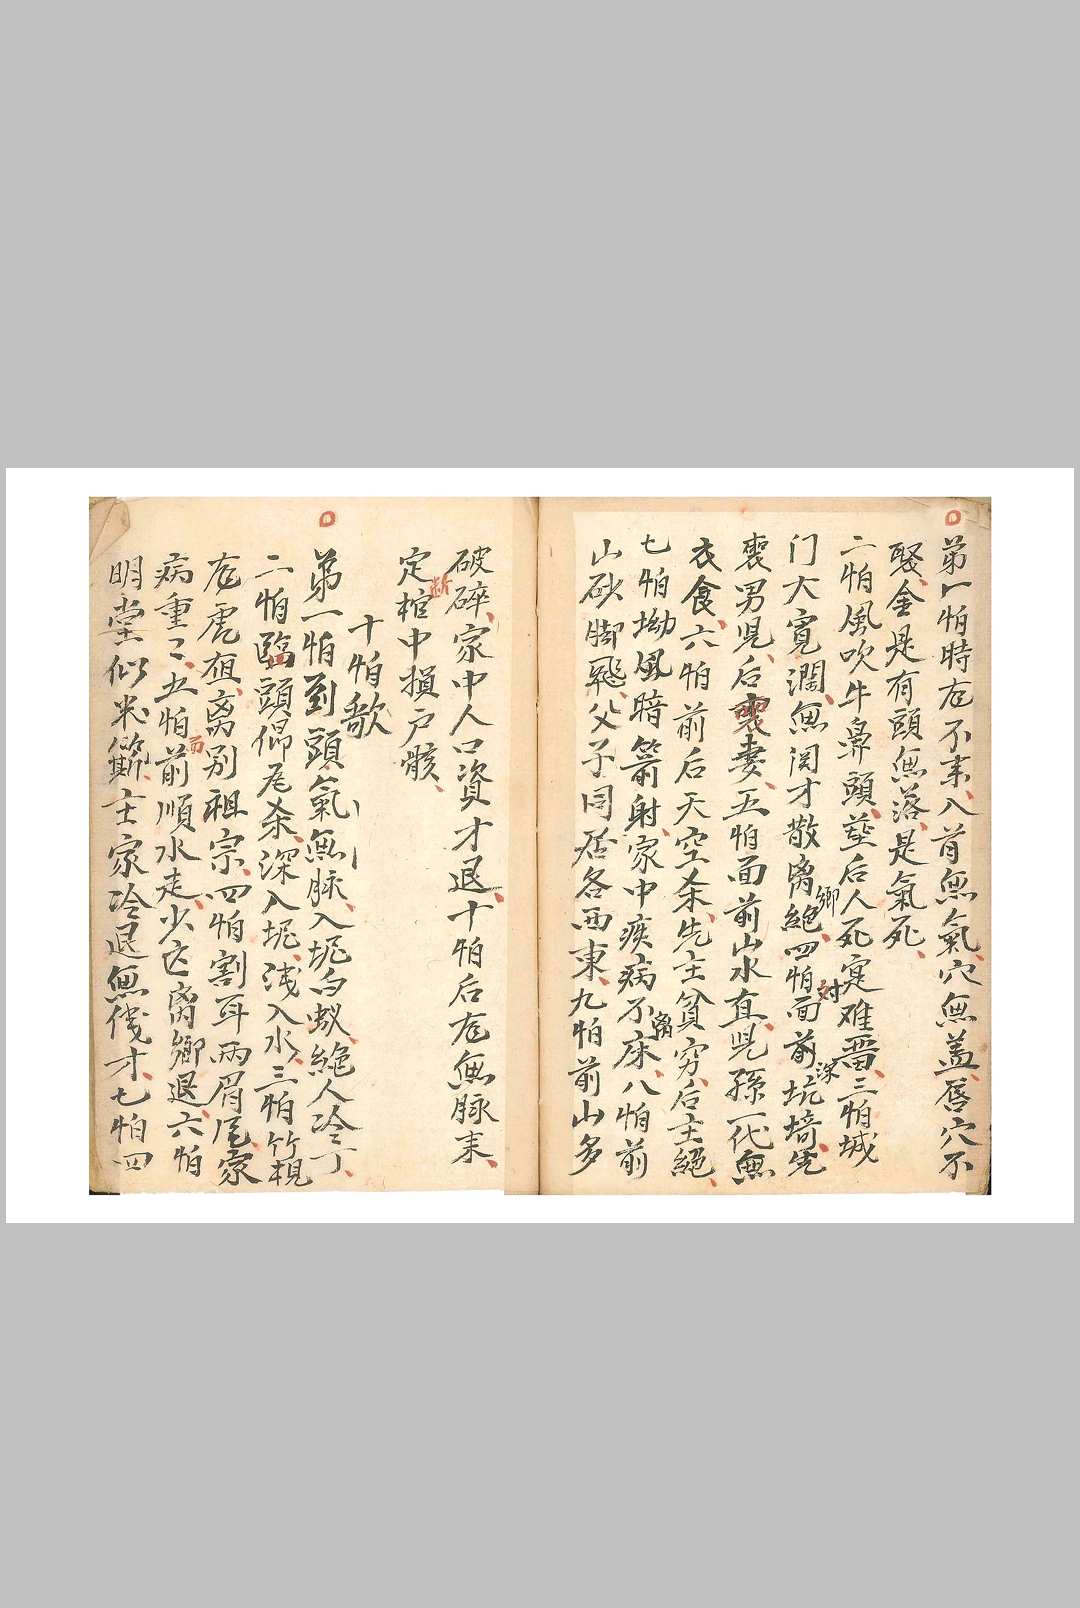 第一怕時龙不来入首無氣穴無盖唇穴不
娶金是有頭無落是氣死
二怕風吹牛鼻頭塟后人死寔难畱三怕城
门大寬濶無関才散离絶鄉四怕面前對坑深埼先
喪男児后喪妻五怕面前山水直児孫一代無
衣食六怕前后天空杀先主貧穷后主絕
七怕坳风暗箭射家中疾病不離床八怕前
山砂脚飛父子同居各西東九怕前山多
破碎家中人口資才退十怕后龙無脉来
定斷棺中損户骸
十怕歌
第一怕到頭氣無脉入坭白蚁絶人冷丁
二怕臨頭仰尾杀深入坭浅入水三怕竹
龙虎砠离别祖宗四怕割耳两眉尾家
病重〻五怕面前順水走少亡离鄉退六怕
明堂似米篩士家冷退無伐才七怕四